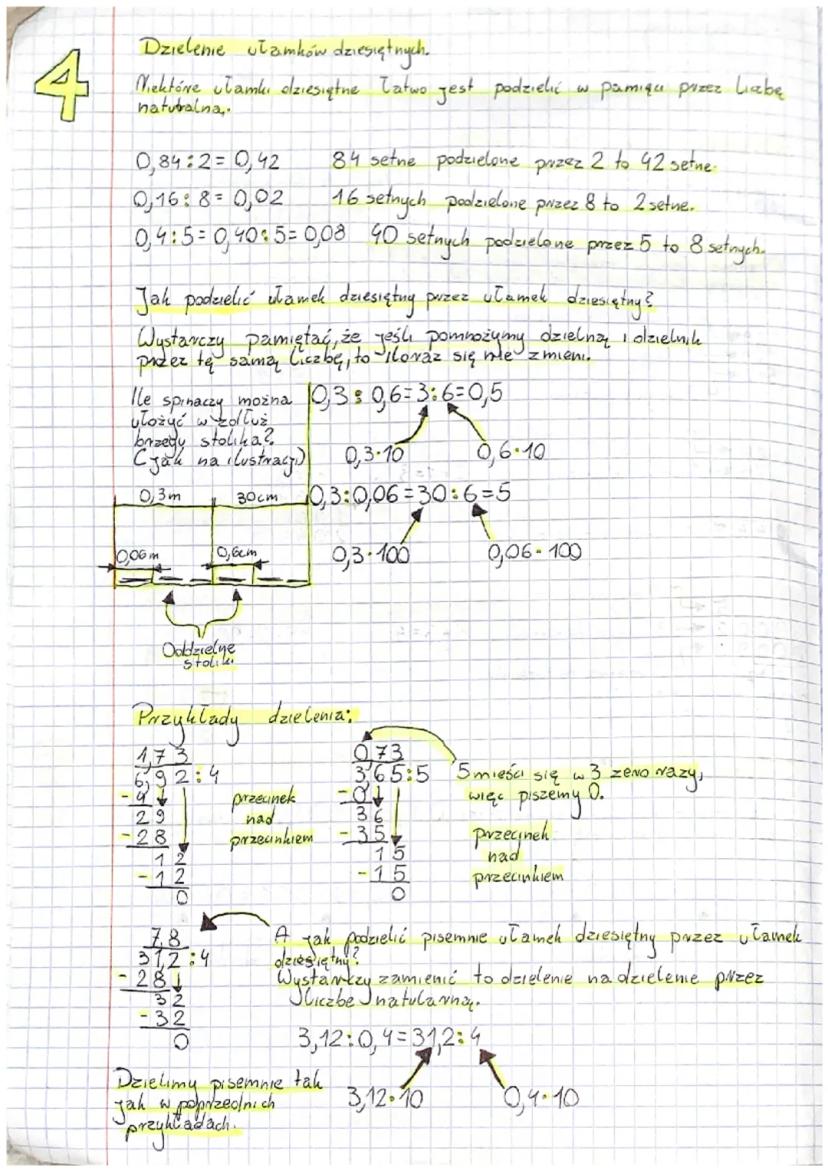 4
Dzielenie ułamków dziesiętnych.
Niektóre ułamki dziesiętne łatwo jest podzielić w pamięci przez liczbę
naturalną.
0,84:2=0,42 84 setne podzielone przez 2 to 42 setne.
0,16:8=0,02 16 setnych podzielone przez 8 to 2 setne.
0,4:5=0,40:5=0,08 40 setnych podzielone przez 5 to 8 setnych.
Jak podzielić ułamek dziesiętny przez ułamek dziesiętny?
Wystarczy pamiętać, że jeśli pomnożymy dzielną i dzielnik
przez tę samą liczbę, to iloraz się nie zmieni.
Ile spinaczy można
ułożyć w zdłuż
brzegu stolika?
(jak na ilustracji)
0,3:0,6=3:6=0,5
0,3·10 0,6·10
0,3m 30cm
0,3:0,06=30:6=5
0,06m 0,6cm
0,3·100 0,06·100
Oddzielne
stoliki
Przykłady dzielenia:
1,73
6,92:4
-4
29
-28
12
-12
0
przecinek
nad
przecinkiem
0,73
3,65:5
-0
36
-35
15
-15
0
5 mieści się w 3 zero razy,
więc piszemy 0.
przecinek
nad
przecinkiem
7,8
31,2:4
-28
32
-32
0
A jak podzielić pisemnie ułamek dziesiętny przez ułamek
dziesiętny?
Wystarczy zamienić to dzielenie na dzielenie przez
liczbę naturalną.
3,12:0,4=31,2:4
3,12·10 0,4·10
Dzielimy pisemnie tak
jak w poprzednich
przykładach.